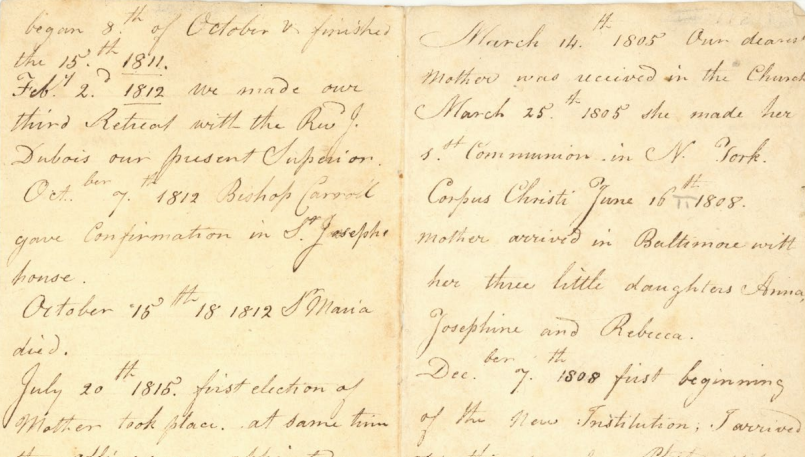 began 8.th of October & finished
the 15.th 1811.
Feb.y 2.d 1812 we made our
third Retreat with the Rev J.
Dubois our present Superior.
Oct.ber 7.th 1812 Bishop Carroll
gave Confirmation in St. Josephs
house.
October 15th 18 1812 Sr Maria
died.
July 20th 1815. first election of
Mother took place. at same time
March 14.th 1805 Our dearest
Mother was received in the Church
March 25.th 1805 she made her
1.st Communion in N. York.
Corpus Christi June 16th 1808.
Mother arrived in Baltimore with
her three little daughters Anna,
Josephine and Rebecca.
Dec.ber 7.th 1808 first beginning
of the New Institution; I arrived